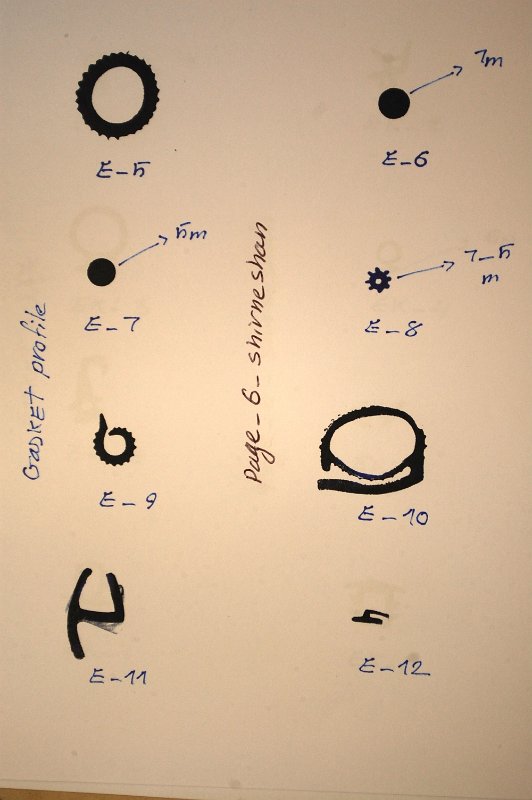 7m
E-5
E-6
5m
7-5
m
E-7
E-8
GASKET profile
Page-6-shirneshan
E-9
E-10
E-11
E-12